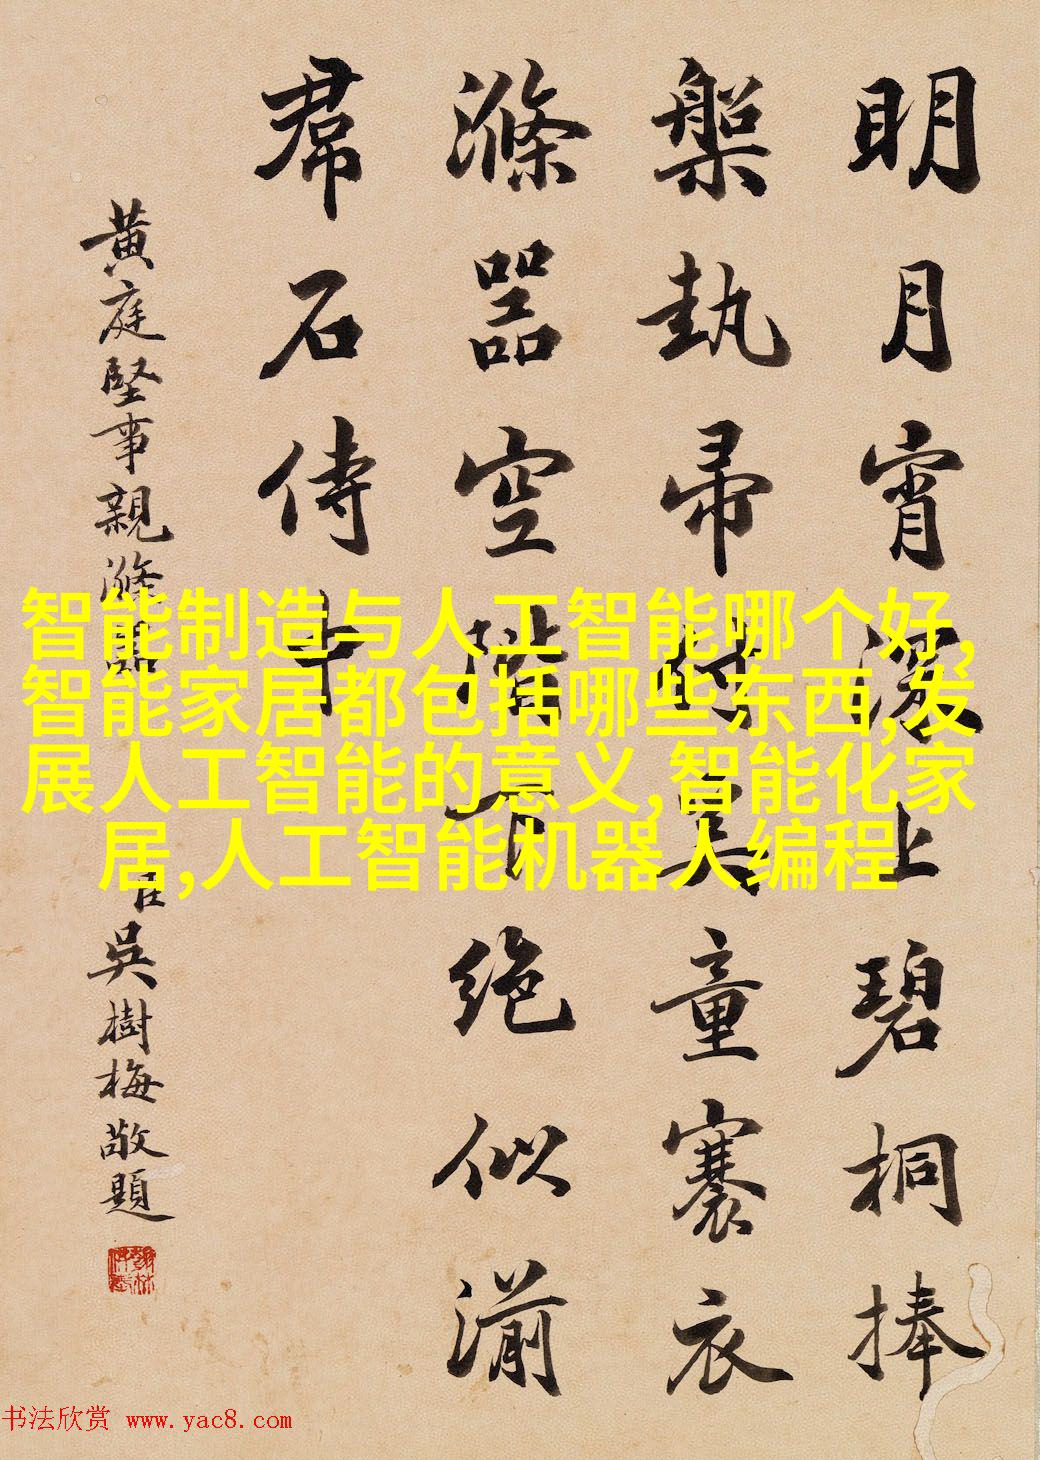 明月宵深上碧桐捧
槃執帚奚童褰衣
滌器空階有絶似湔
帬石侍中
黃庭堅事親滌器
臣吳樹梅敬題
智能制造与人工智能哪个好,
智能家居都包括哪些东西,发
展人工智能的意义,智能化家
居,人工智能机器人编程
书法欣赏 www.yac8.com